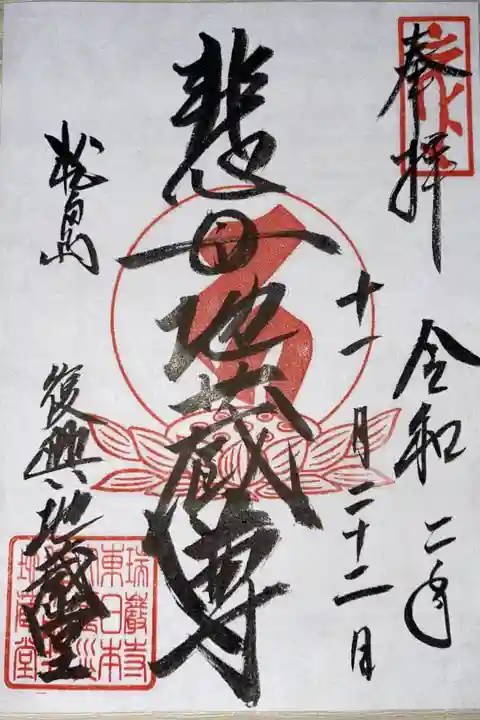 奉拝
令和二年
十一月二十二日
悲母地蔵尊
松島
復興地蔵堂
瑞巌寺
東日本
地蔵堂